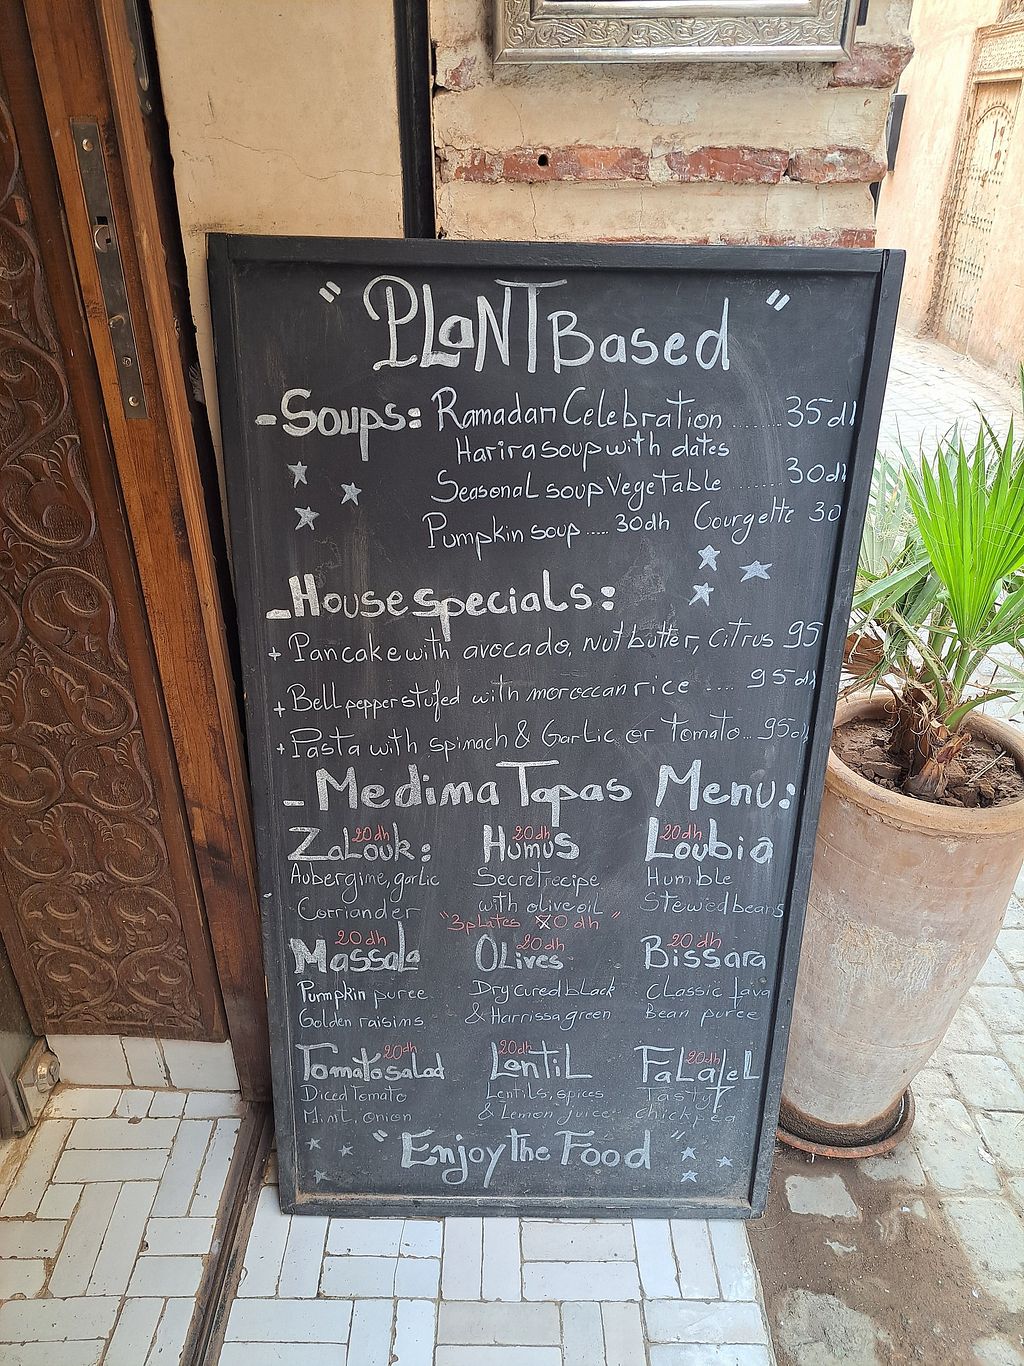 " PLaNT Based "
- Soups: Ramadan Celebration ...... 35dh
Harira soup with dates
Seasonal soup Vegetable ...... 30dh
Pumpkin soup ..... 30dh Courgette 30
- House specials:
+ Pancake with avocado, nut butter, citrus 95
+ Bell pepper stufed with moroccan rice .... 95dh
+ Pasta with spinach & Garlic or Tomato... 95d
- Medina Tapas Menu:
20dh 20dh 20dh
Zalouk: Humus Loubia
Aubergine, garlic Secret recipe Humble
Corriander with olive oil Stewed beans
"3 plates 0 dh"
20dh 20dh 20dh
Massala Olives Bissara
Pumpkin puree Dry cured black Classic fava
Golden raisins & Harrissa green Bean puree
20dh 20dh 20dh
Tomato salad Lentil Falafel
Diced Tomato Lentils, spices Tasty
Mint, onion & Lemon juice chickpea
" Enjoy the Food "